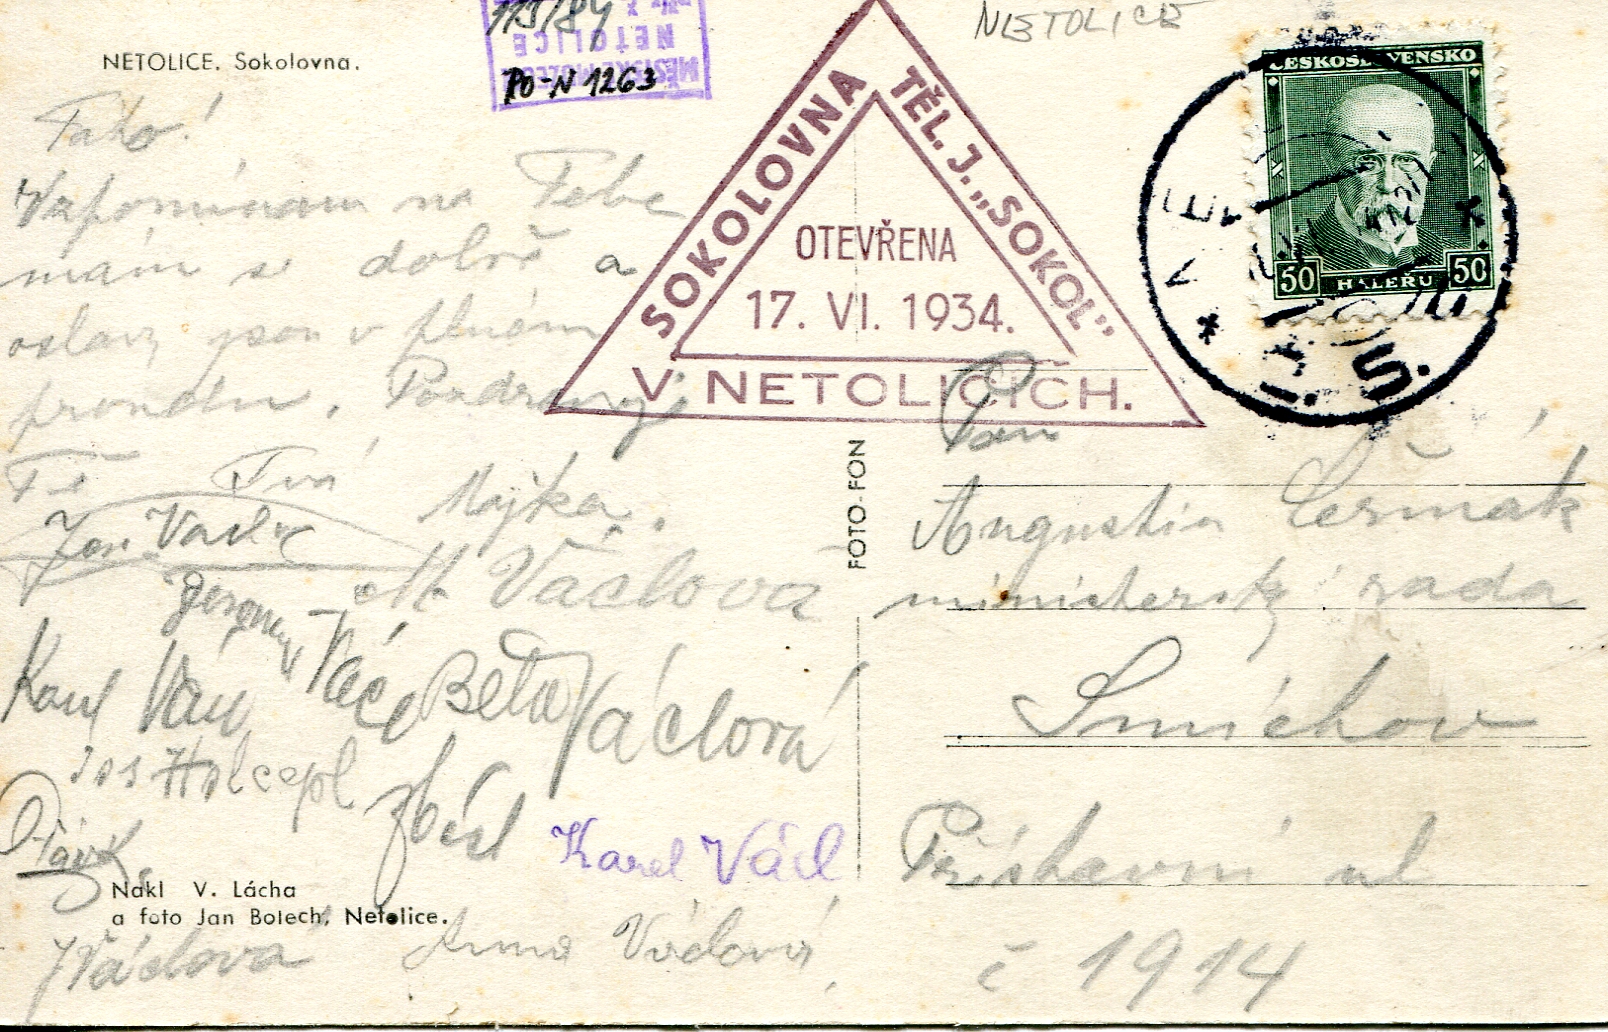 NETOLICE. Sokolovna.
115/84
MĚSTSKÉ MUZEUM
NETOLICE
PO-N 1263
NETOLICE
SOKOLOVNA TĚL. J. „SOKOL”
OTEVŘENA
17. VI. 1934.
V NETOLICÍCH.
ČESKOSLOVENSKO
50 HALÉŘŮ 50
Taťko!
Vzpomínám na Tebe
mám se dobře a
oslavy jsou v plném
proudu. Pozdravuje
Tě Tvá
Majka.
M. Václová
Karel Václ
Beta Václová
Jos Holcepl
Karel Václ
Václová
Anna Václová
FOTO-FON
Nakl V. Lácha
a foto Jan Bolech, Netolice.
Pan
Augustin Čermák
ministerský rada
Smíchov
Přístavní ul
č 1914